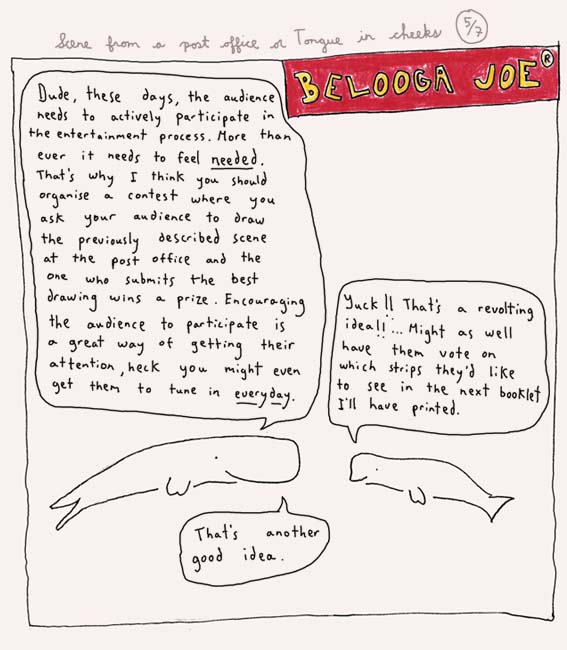 Scene from a post office or Tongue in cheeks 5/7
BELOOGA JOE®
Dude, these days, the audience
needs to actively participate in
the entertainment process. More than
ever it needs to feel needed.
That's why I think you should
organise a contest where you
ask your audience to draw
the previously described scene
at the post office and the
one who submits the best
drawing wins a prize. Encouraging
the audience to participate is
a great way of getting their
attention, heck you might even
get them to tune in everyday.
Yuck!! That's a revolting
idea!!... Might as well
have them vote on
which strips they'd like
to see in the next booklet
I'll have printed.
That's another
good idea.